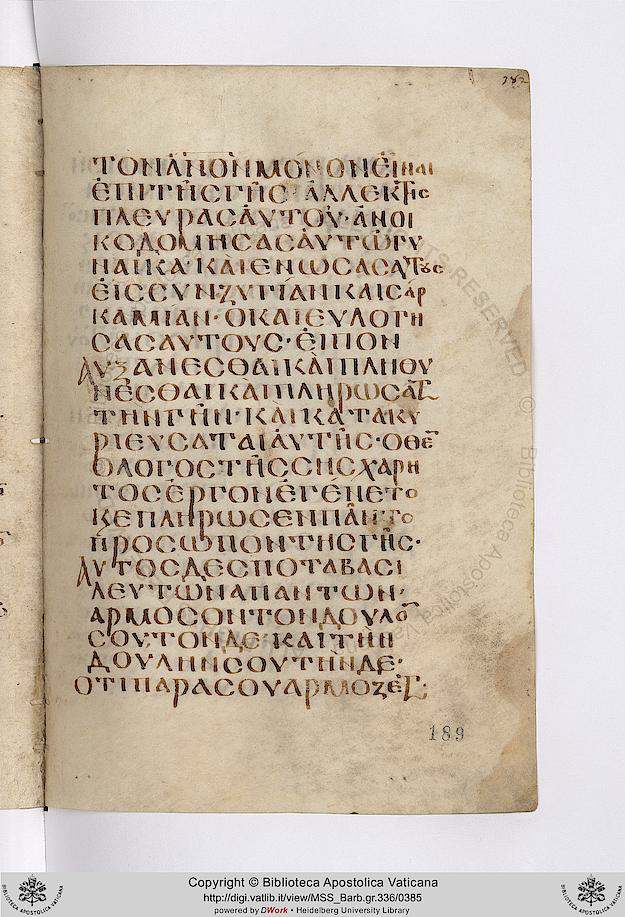 382
ΤΟΝΑΝΟΝΜΟΝΟΝΕΙΝΑΙ
ΕΠΙΤΗΣΓΗΣ·ΑΛΛΕΚΤΗΣ
ΠΛΕΥΡΑΣΑΥΤΟΥ·ΑΝΟΙ
ΚΟΔΟΜΗΣΑΣΑΥΤΩΓΥ
ΝΑΙΚΑ·ΚΑΙΕΝΩΣΑΣΑΥΤΟΥΣ
ΕΙΣΣΥΝΖΥΓΙΑΝΚΑΙΣΑΡ
ΚΑΜΙΑΝ·ΟΚΑΙΕΥΛΟΓΗ
ΣΑΣΑΥΤΟΥΣ·ΕΙΠΟΝ
ΑΥΞΑΝΕΣΘΑΙΚΑΙΠΛΗΘΥ
ΝΕΣΘΑΙΚΑΙΠΛΗΡΩΣΑΤΕ
ΤΗΝΓΗΝ·ΚΑΙΚΑΤΑΚΥ
ΡΙΕΥΣΑΤΑΙΑΥΤΗΣ·ΟΘΕ̅
ΟΛΟΓΟΣΤΗΣΣΗΣΧΑΡΗ
ΤΟΣΕΡΓΟΝΕΓΕΝΕΤΟ
ΚΕΠΛΗΡΩΣΕΝΠΑΝΤΟ
ΠΡΟΣΩΠΟΝΤΗΣΓΗΣ·
ΑΥΤΟΣΔΕΣΠΟΤΑΒΑΣΙ
ΛΕΥΤΩΝΑΠΑΝΤΩΝ·
ΑΡΜΟΣΟΝΤΟΝΔΟΥΛΟ̅
ΣΟΥΤΟΝΔΕ·ΚΑΙΤΗΝ
ΔΟΥΛΗΝΣΟΥΤΗΝΔΕ·
ΟΤΙΠΑΡΑΣΟΥΑΡΜΟΖΕΤΕ:
189
Copyright © Biblioteca Apostolica Vaticana
http://digi.vatlib.it/view/MSS_Barb.gr.336/0385
powered by DWork • Heidelberg University Library